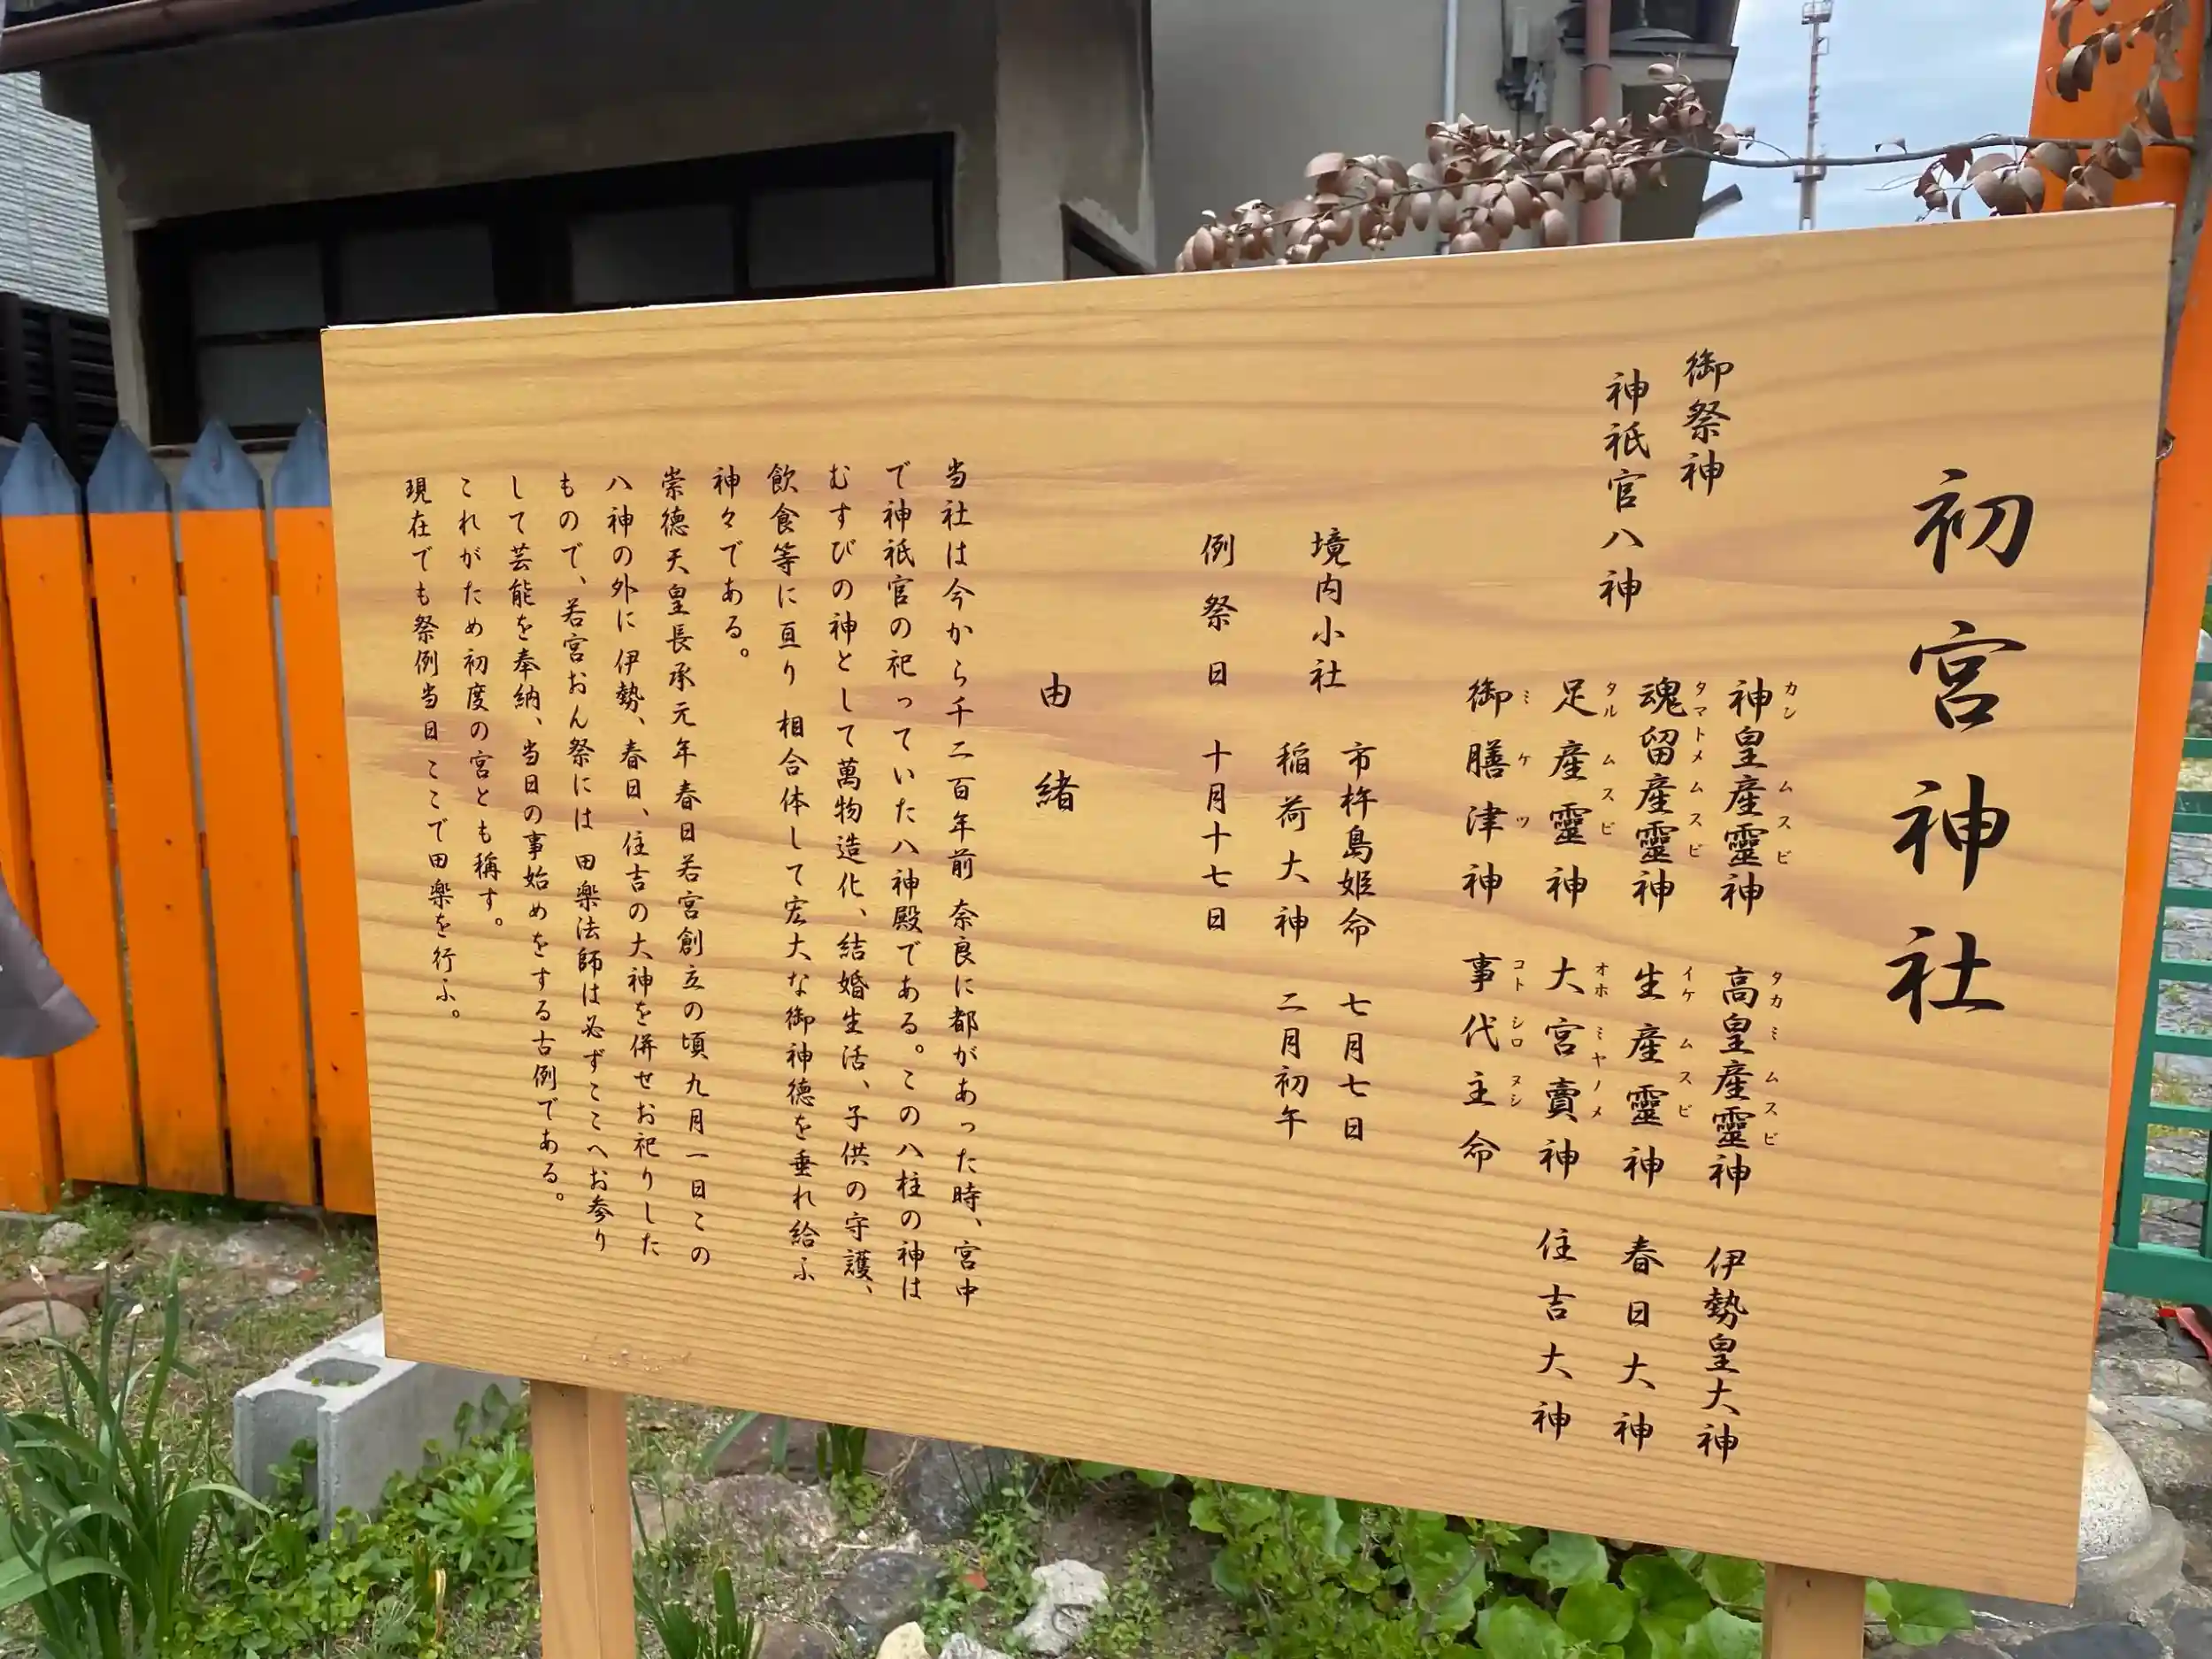 初宮神社
御祭神
神祇官八神
神皇産靈神 高皇産靈神 伊勢皇大神
カン ムスビ タカミ ムスビ
魂留産靈神 生産靈神 春日大神
タマトメムスビ イケムスビ
足産靈神 大宮賣神 住吉大神
タルムスビ オホミヤノメ
御膳津神 事代主命
ミケツ コトシロヌシ
境内小社
市杵島姫命 七月七日
稲荷大神 二月初午
例祭日 十月十七日
由緒
当社は今から千二百年前 奈良に都があった時、宮中
で神祇官の祀っていた八神殿である。この八柱の神は
むすびの神として萬物造化、結婚生活、子供の守護、
飲食等に亘り 相合体して宏大な御神徳を垂れ給ふ
神々である。
崇徳天皇長承元年春日若宮創立の頃九月一日この
八神の外に伊勢、春日、住吉の大神を併せお祀りした
もので、若宮おん祭には田楽法師は必ずここへお参り
して芸能を奉納、当日の事始めをする古例である。
これがため初度の宮とも稱す。
現在でも祭例当日ここで田楽を行ふ。